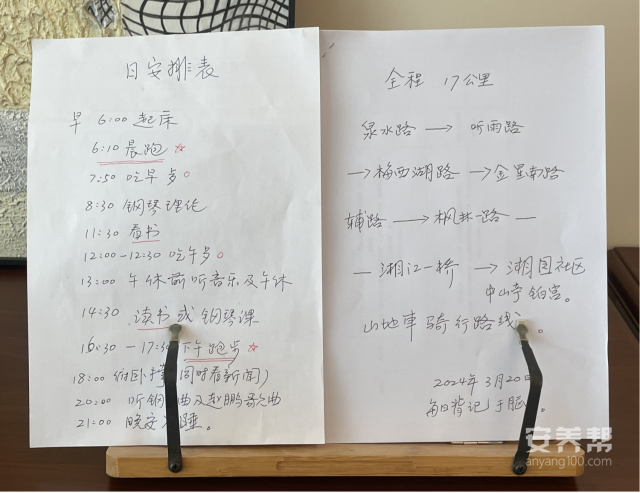 日安排表
早 6:00 起床
6:10 晨跑
7:50 吃早歺
8:30 钢琴理化
11:30 看书
12:00-12:30 吃午歺
13:00 午休前听音乐及午休
14:30 读书或钢琴课
16:30-17:30 下午跑步
18:00 俯卧撑 同时看新闻)
20:00 听钢 曲及赵鹏歌曲
21:00 晚安 睡。
全程 17公里
绿水路 → 听雨路
→ 梅西湖路 → 金星南路
辅路 → 枫林一路 —
— 湘江一桥 → 湘园社区
中山亭铂宫。
山地車骑行路线 。
2024年3月20日
每日背记于脑 。
安养帮
anyang100.com